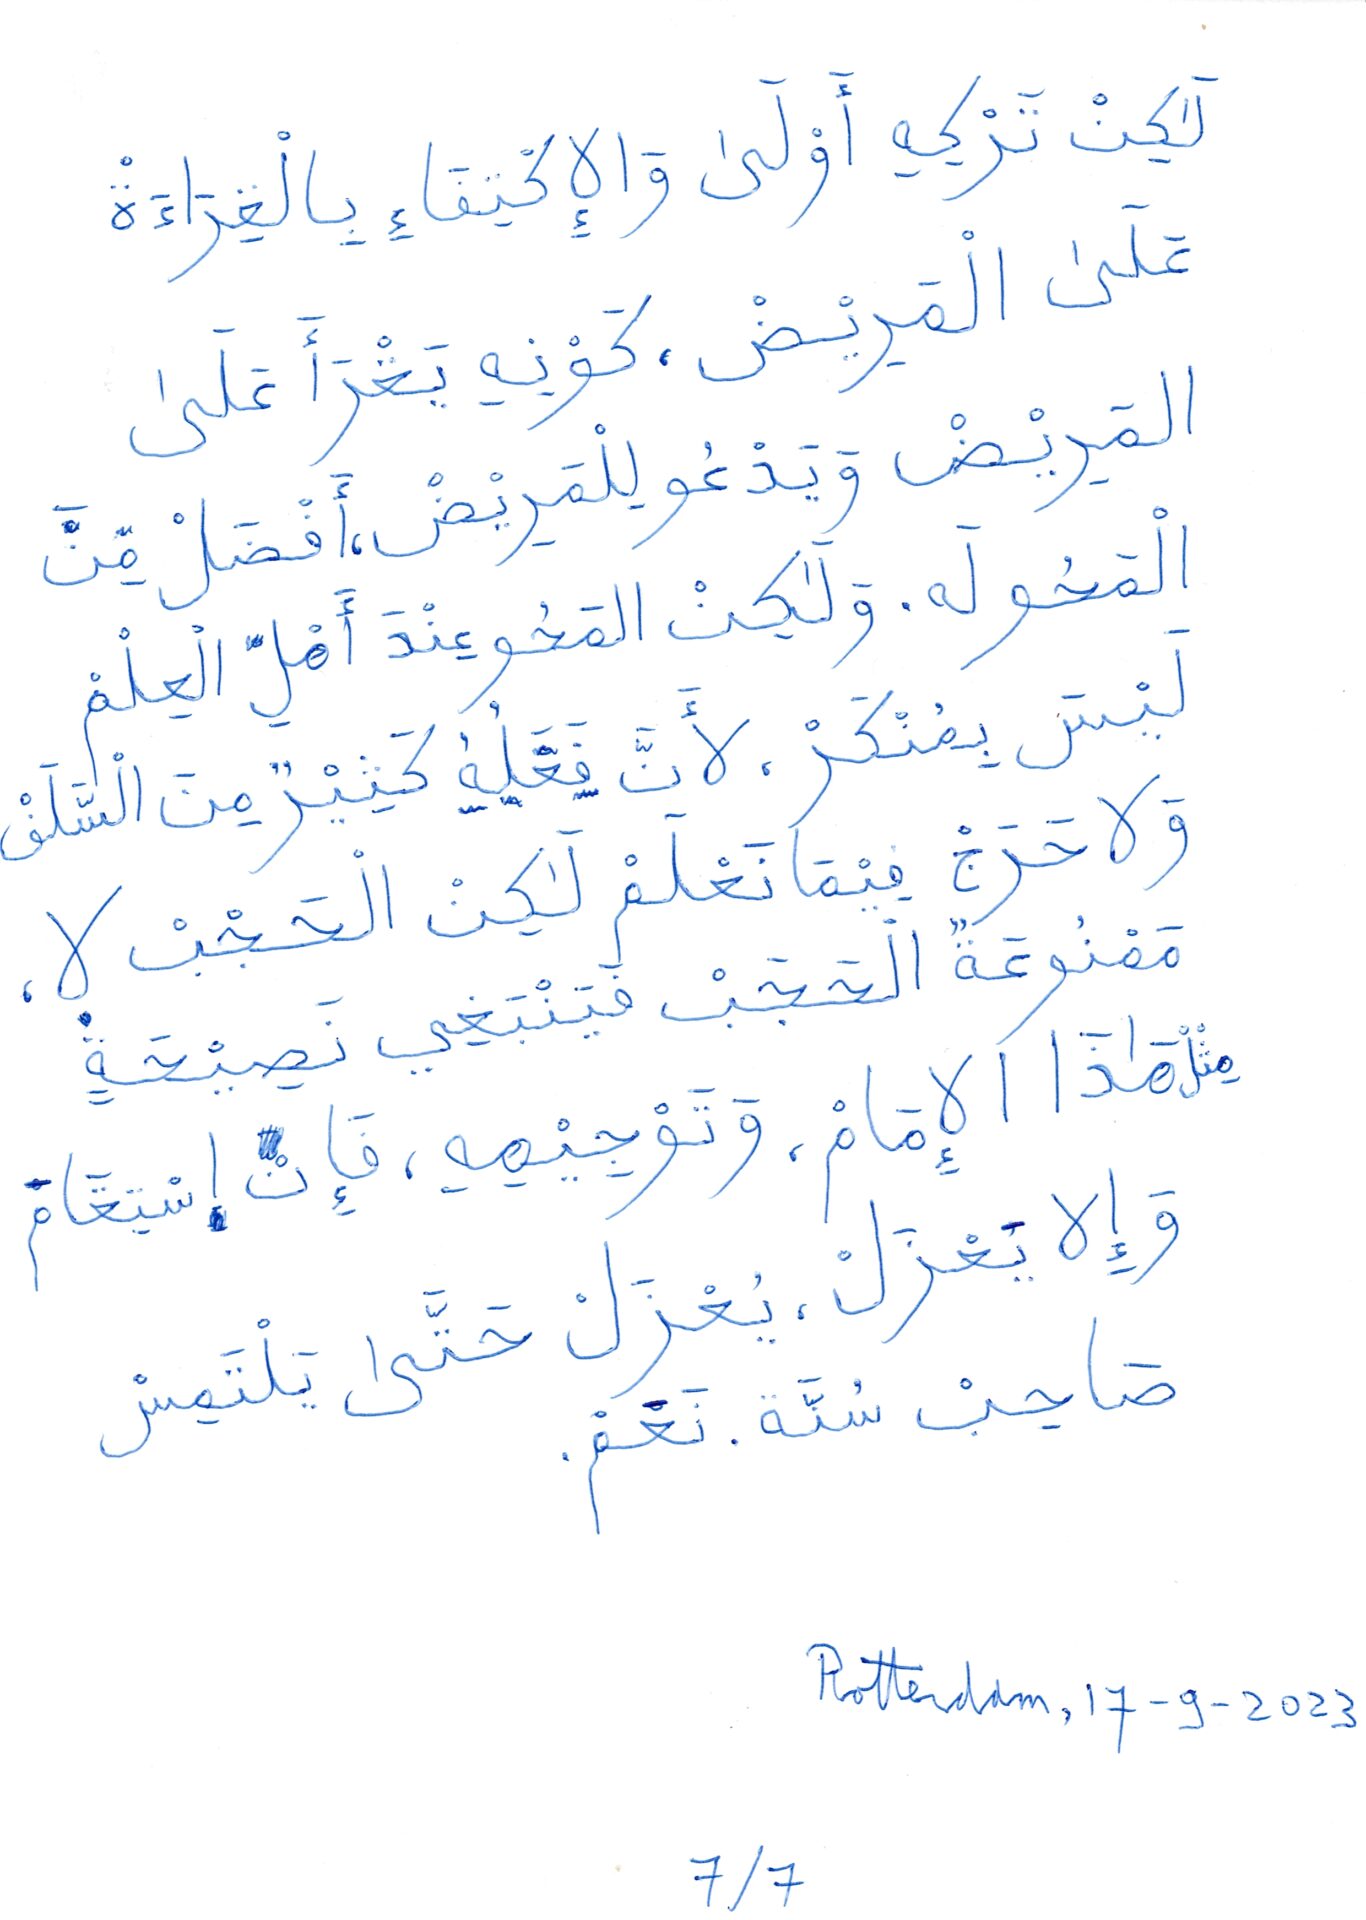 لَٰكِنْ تَرْكِهِ أَوْلَىٰ وَالإِكْتِفَاءِ بِالْقِرَاءَةْ
عَلَىٰ الْمَرِيْضْ، كَوْنِهِ يَقْرَأَ عَلَىٰ
المَرِيْضْ وَيَدْعُو لِلْمَرِيْضْ، أَفْضَلْ مِّنَّ
الْمَحُو لَه. وَلَٰكِنْ المَحُو عِنْدَ أَهْلِّ الْعِلْمْ
لَيْسَ بِمُنْكَرْ، لأَنَّ فَعَّلِهُ كَثِيْرٌ مِنَ الْسَّلَفْ
وَلا حَرَجْ فِيْمَا نَعْلَمْ لَٰكِنْ الْحَجْبْ لا،
مَمْنُوعَةٌ الْحَجَبْ فَيَنْبَغِي نَصِيْحَةِ
مِثْلْ هَٰذَا الإِمَامْ، وَتَوْجِيْهِهِ، فَإِنْ إِسْتَقَامَ
وَإِلا يَعْزَلْ، يُعْزَلْ حَتَّىٰ يَلْتَمِسْ
صَاحِبْ سُنَّة. نَعَمْ.
Rotterdam, 17-9-2023
7/7